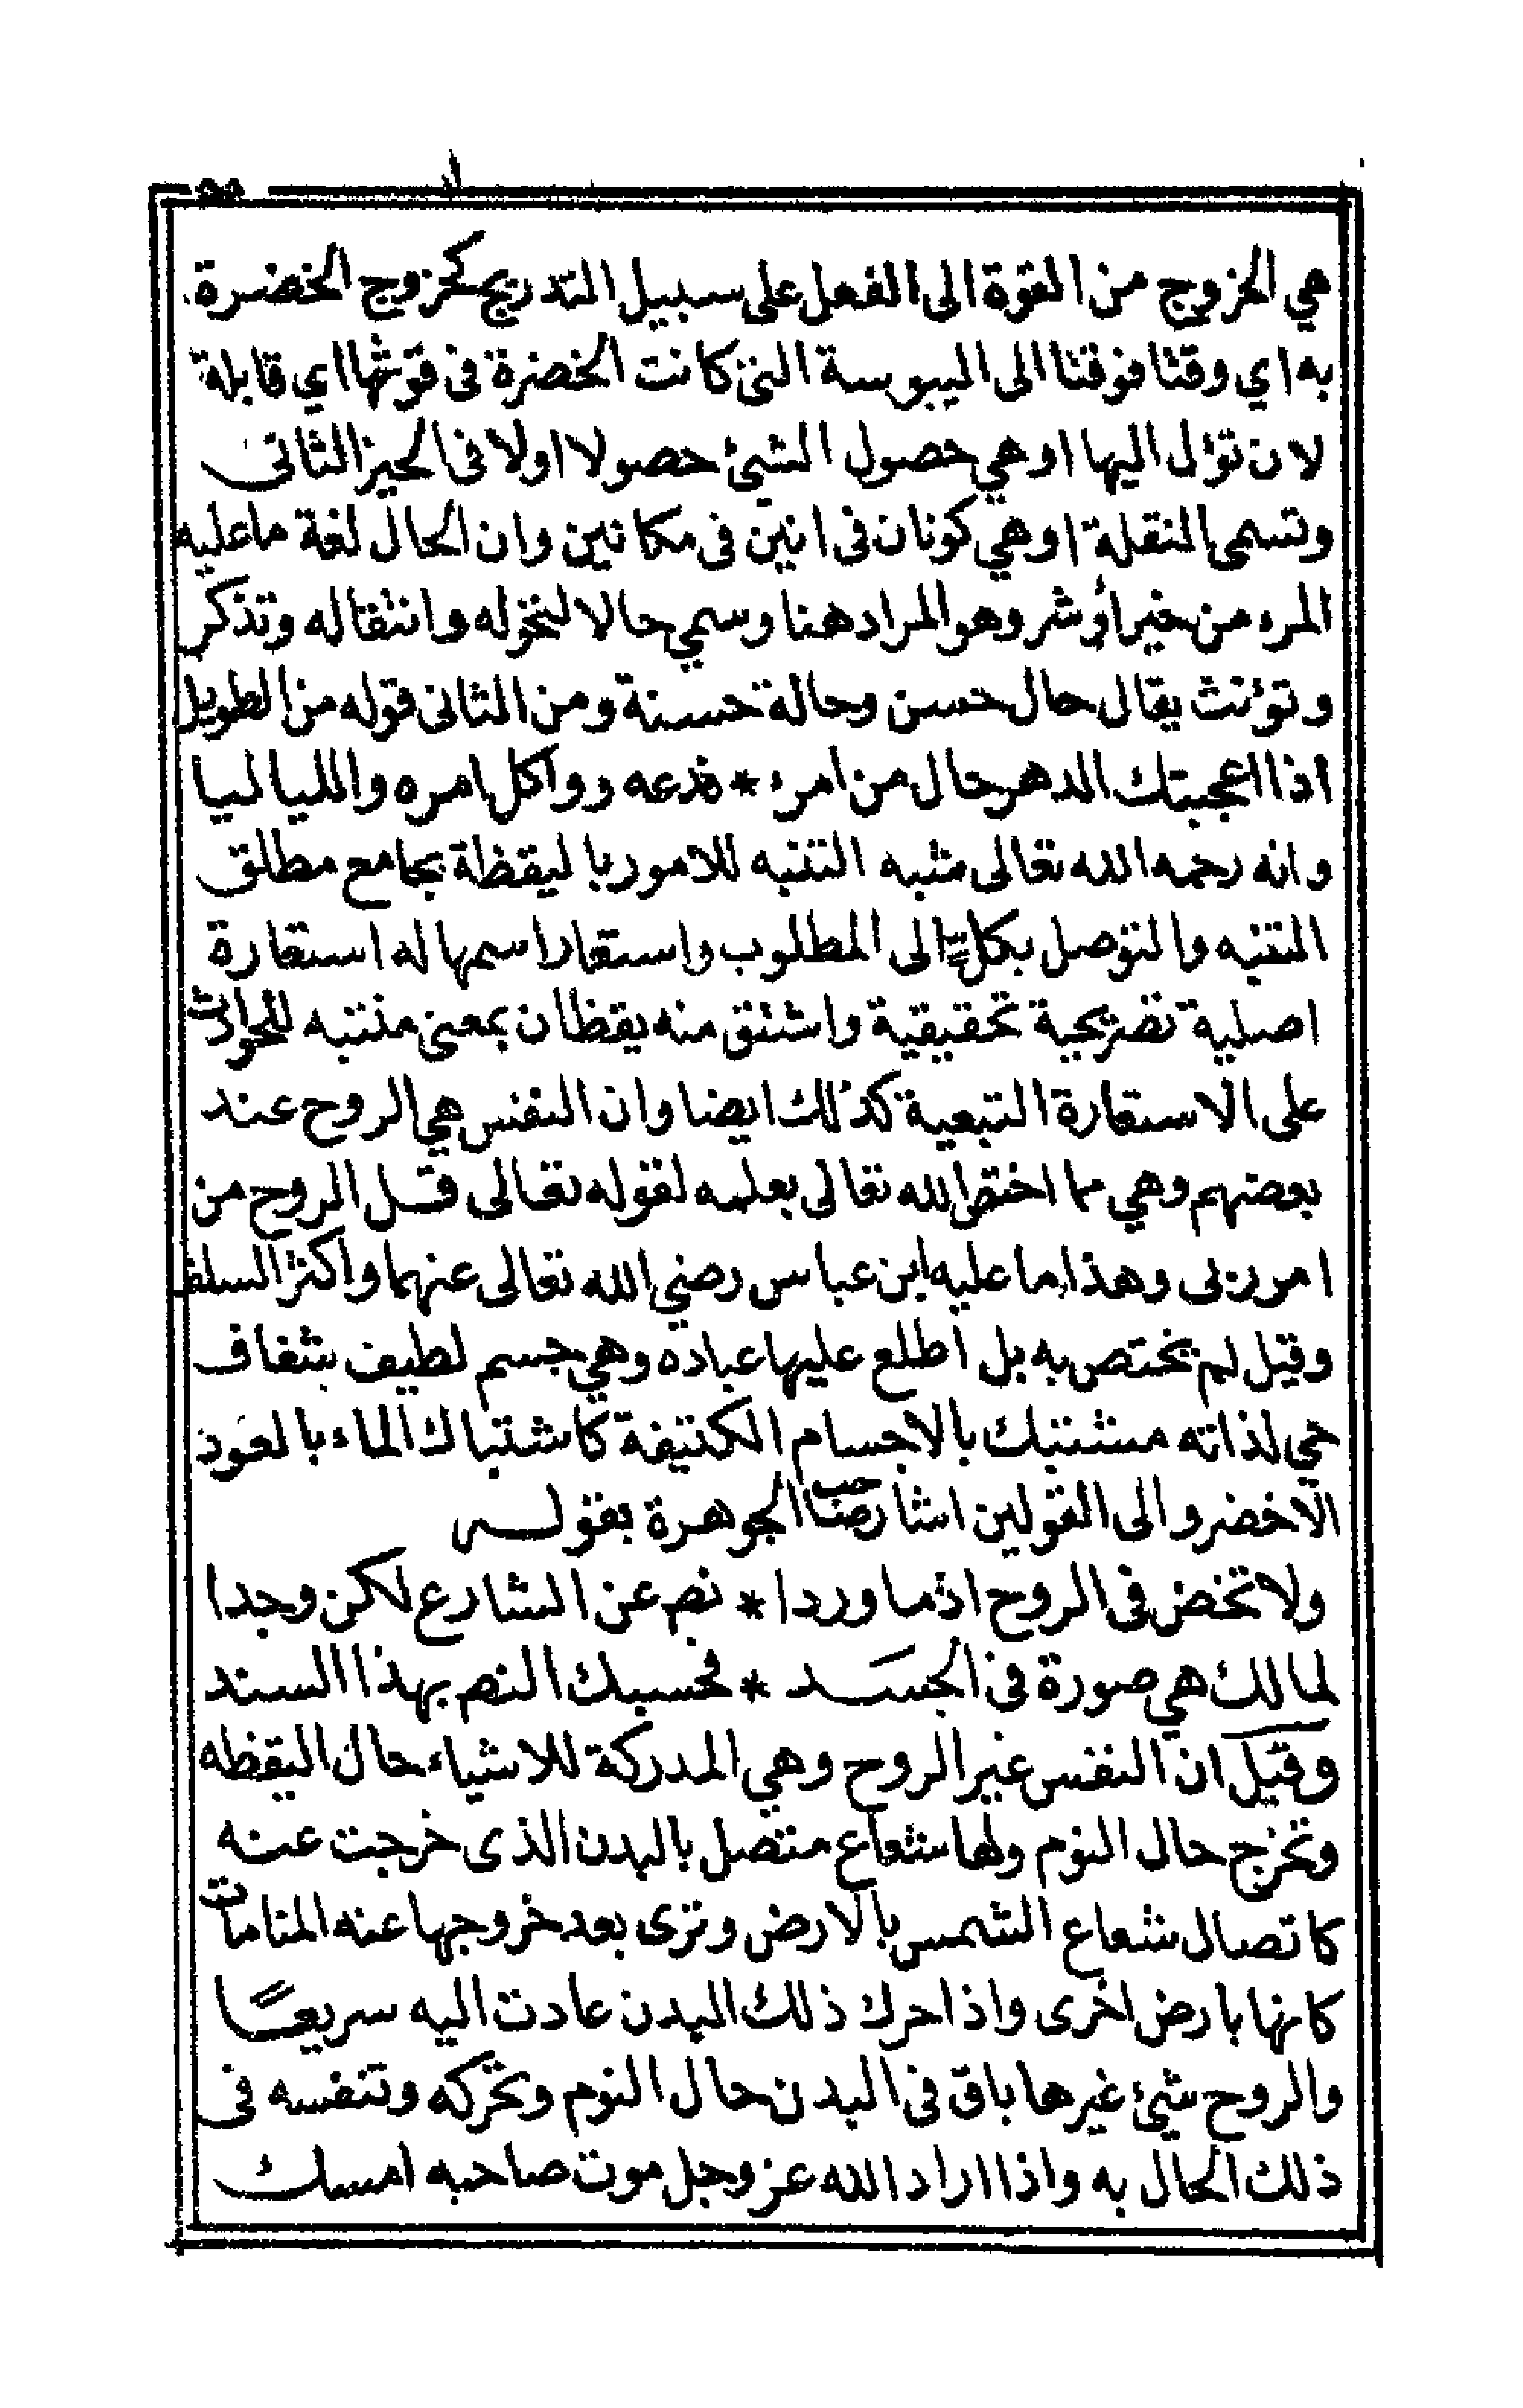 ٥٥
هي الخروج من القوة الى الفعل على سبيل التدريج كخروج الخضرة
به اي وقتا فوقتا الى اليبوسة التي كانت الخضرة في قوتها اي قابلة
لان تؤل اليها او هي حصول الشيئ حصولا اولا في الحيز الثاني
وتسمى النقلة او هي كونان في انين في مكانين وان الحال لغة ما عليه
المرء من خير أو شر وهو المراد هنا وسمي حالا لتحوله وانتقاله وتذكر
وتؤنث يقال حال حسن وحالة حسنة ومن الثاني قوله من الطويل
اذا اعجبتك الدهر حال من امرء * فدعه وواكل امره واللياليا
وانه رحمه الله تعالى شبه التنبه للامور باليقظة بجامع مطلق
التنبه والتوصل بكلٍّ الى المطلوب واستعار اسمها له استعارة
اصلية تصريحية تحقيقية واشتق منه يقظان بمعنى متنبه للحوادث
على الاستعارة التبعية كذلك ايضا وان النفس هي الروح عند
بعضهم وهي مما اختص الله تعالى بعلمه لقوله تعالى قل الروح من
امر ربى وهذا ما عليه ابن عباس رضي الله تعالى عنهما واكثر السلف
وقيل لم يختص به بل اطلع عليها عباده وهي جسم لطيف شفاف
حي لذاته مشتبك بالاجسام الكثيفة كاشتباك الماء بالعود
الاخضر والى القولين اشار صاحب الجوهرة بقوله
ولا تخض في الروح اذ ما وردا * نص عن الشارع لكن وجدا
لمالك هي صورة في الجسد * فحسبك النص بهذا السند
وقيل ان النفس غير الروح وهي المدركة للاشياء حال اليقظه
وتخرج حال النوم ولها شعاع متصل بالبدن الذى خرجت عنه
كاتصال شعاع الشمس بالارض وترى بعد خروجها عنه المنامات
كانها بارض اخرى واذا حرك ذلك البدن عادت اليه سريعًا
والروح شيئ غيرها باق في البدن حال النوم وتحركه وتنفسه في
ذلك الحال به واذا اراد الله عز وجل موت صاحبه امسك